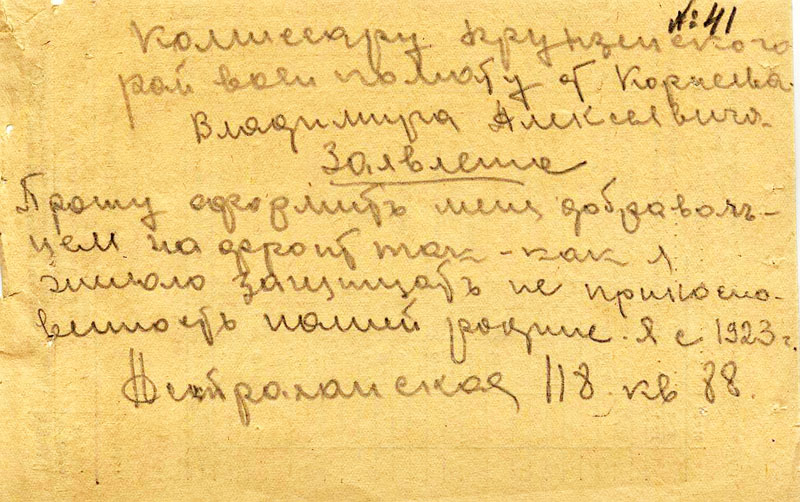 № 41
Комиссару Фрунзенского
рай воен комату от Корнева
Владимира Алексеевича
Заявление
Прошу оформить меня добраволь-
цем на фронт так-как я
желаю защищать не прикосно-
венность нашей родине. Я с 1923 г.
Астраханская 118 кв 88.